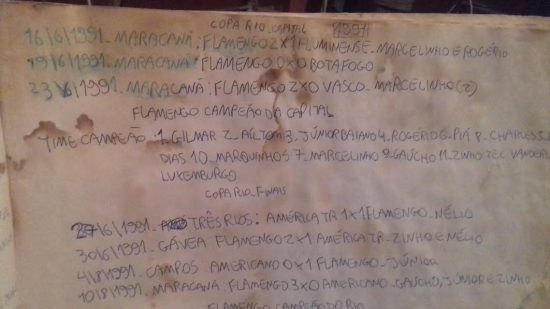 COPA RIO CAPITAL 1991
16/6/1991. MARACANÃ: FLAMENGO 2X1 FLUMINENSE. MARCELINHO E ROGÉRIO
19/6/1991. MARACANÃ: FLAMENGO 0X0 BOTAFOGO
23/6/1991. MARACANÃ: FLAMENGO 2X0 VASCO. MARCELINHO (2)
FLAMENGO CAMPEÃO DA CAPITAL
TIME CAMPEÃO: 1. GILMAR 2. AÍLTOM 3. JÚNIOR BAIANO 4. ROGERIO 6. PIÁ 8. CHARLES
DIAS 10. MARQUINHOS 7. MARCELINHO 9. GAÚCHO 11. ZINHO TEC. VANDER
LUXEMBURGO
COPA RIO_FINAIS
27/6/1991. TRÊS RIOS: AMÉRICA TR 1X1 FLAMENGO_NÉLIO
30/6/1991. GÁVEA: FLAMENGO 2X1 AMÉRICA TR. ZINHO E NÉLIO
4/8/1991. CAMPOS: AMERICANO 0X1 FLAMENGO_JÚNIOR
10/8/1991. MARACANÃ: FLAMENGO 3X0 AMERICANO_GAÚCHO, JÚNIOR E ZINHO
FLAMENGO CAMPEÃO DO RIO